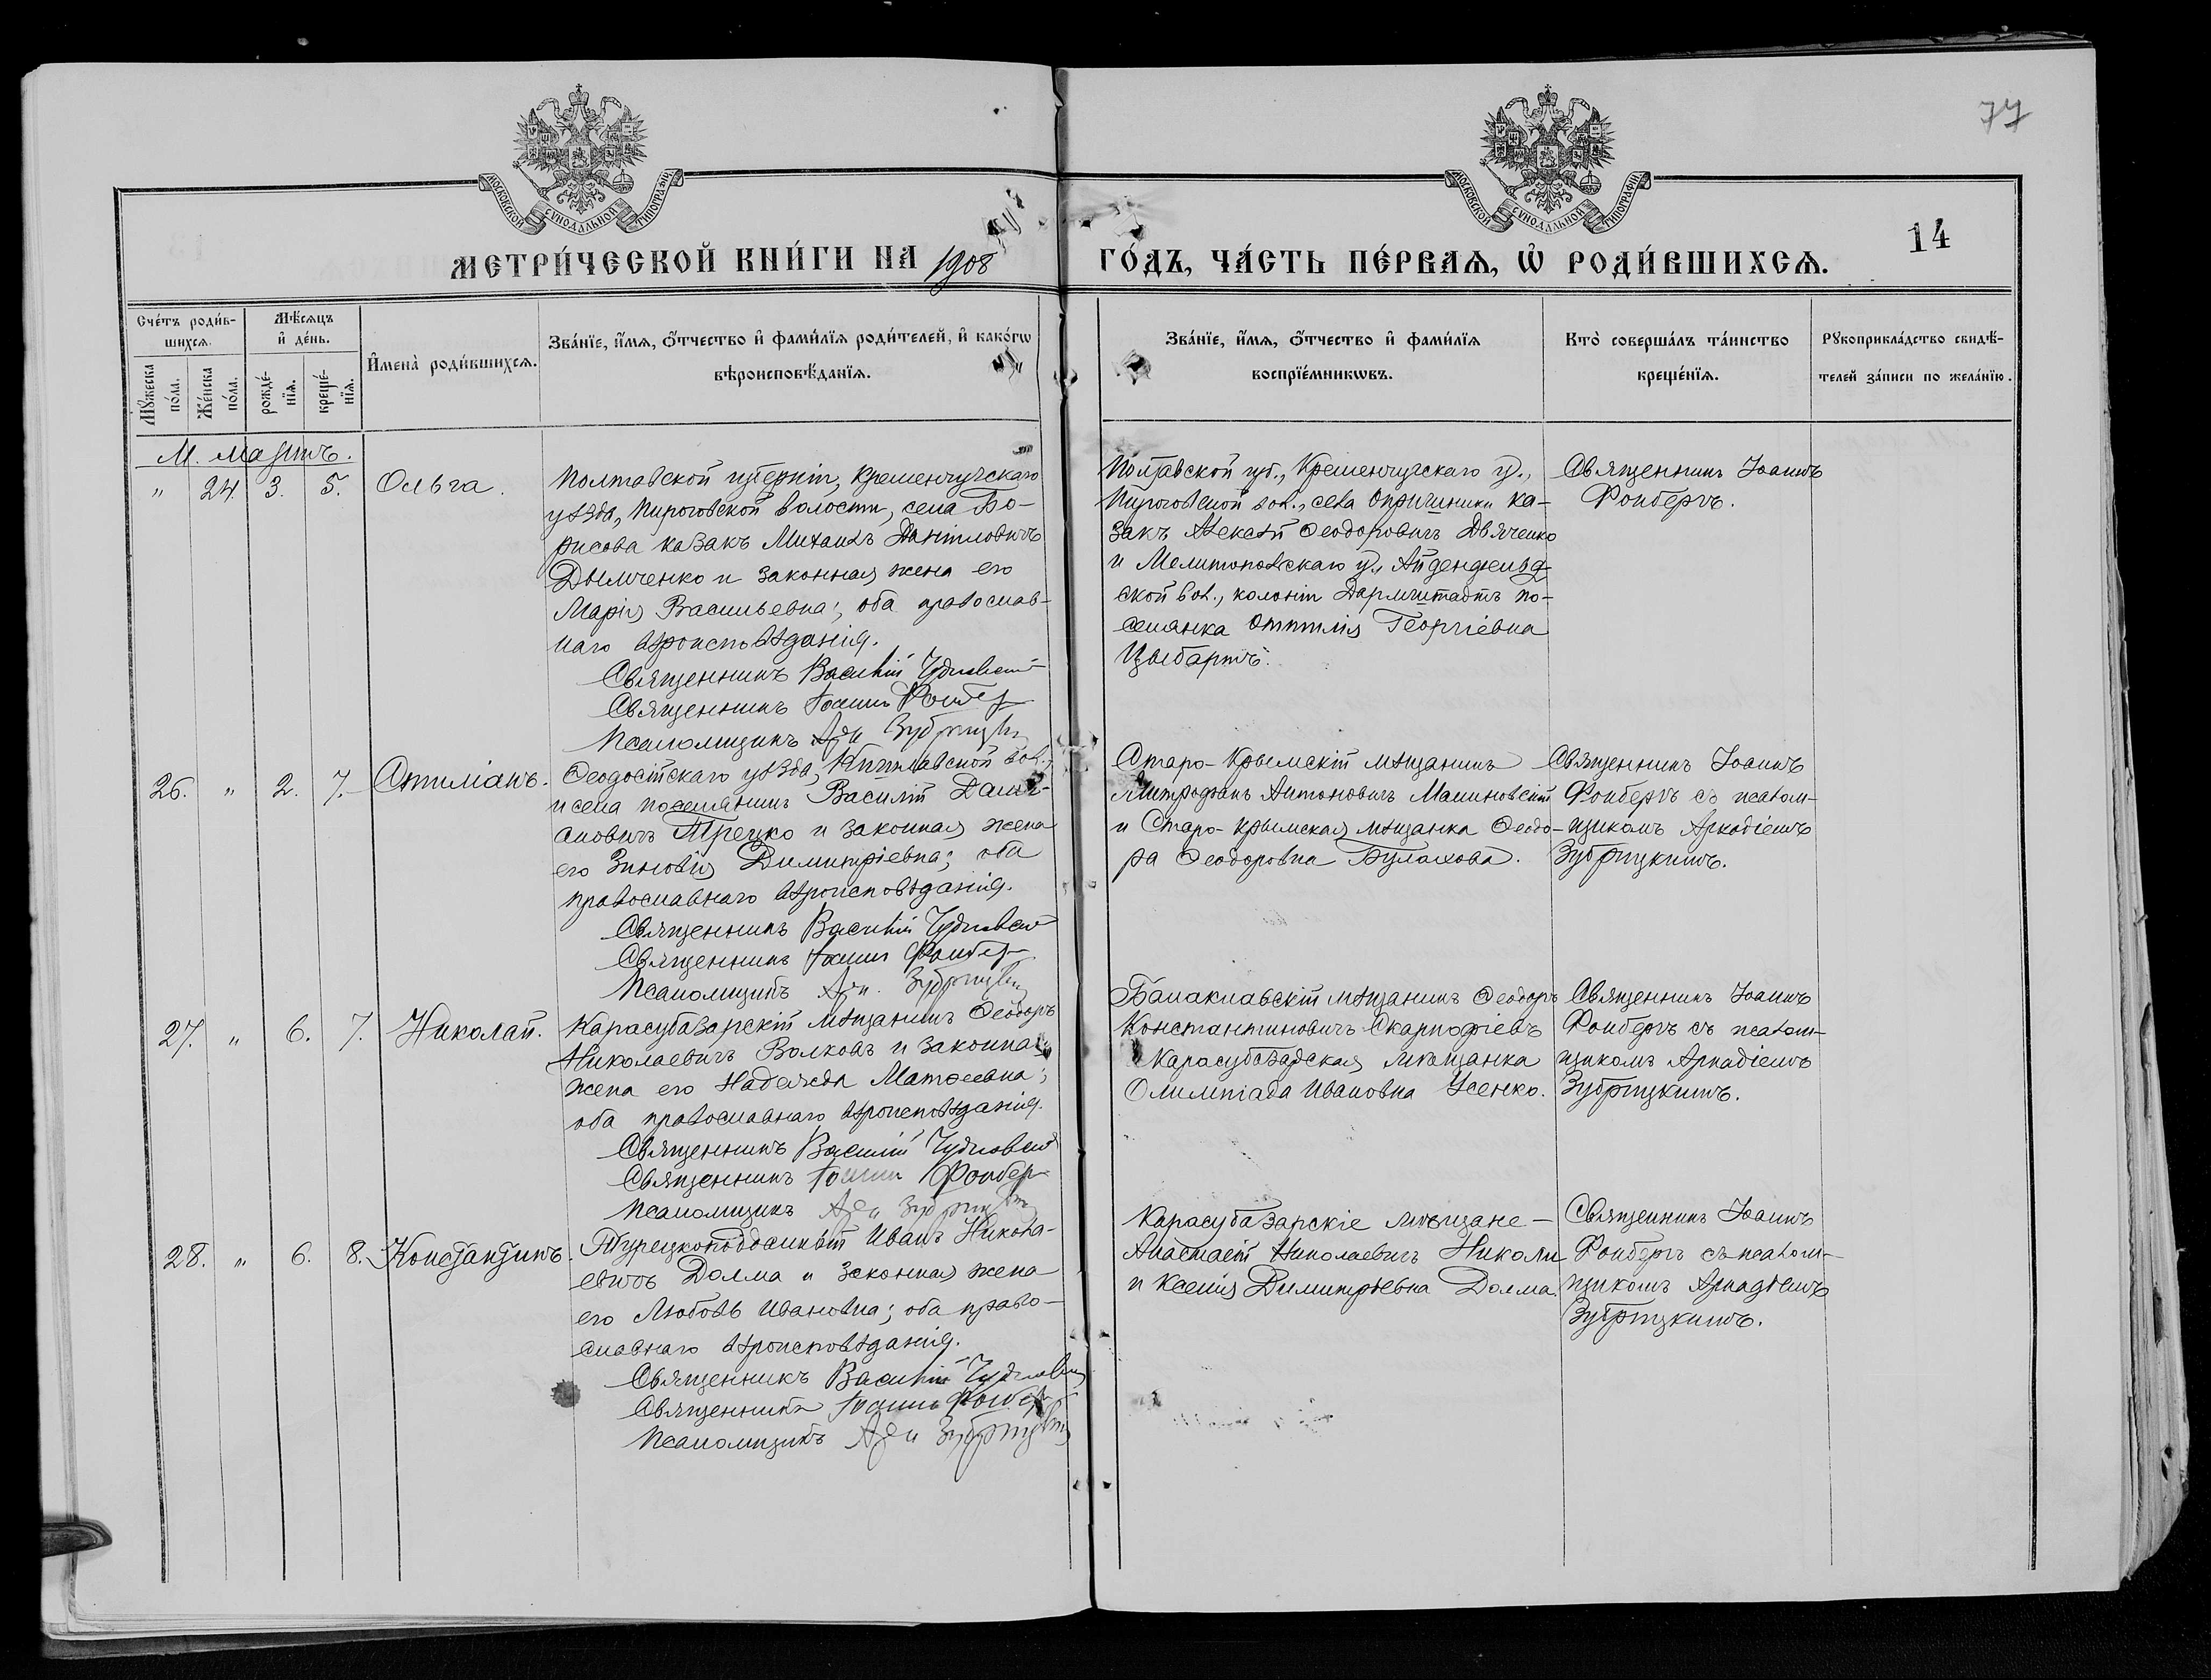 77
МОСКОВСКОЙ СУНОДАЛЬНОЙ ТИПОГРАФІИ
МОСКОВСКОЙ СУНОДАЛЬНОЙ ТИПОГРАФІИ
14
МЕТРИ́ЧЕСКОЙ КНИ́ГИ НА 1908
ГО́ДЪ, ЧА́СТЬ ПЕ́РВАѦ, Ѡ҆ РОДИ́ВШИХСѦ.
Сче́тъ роди́в-
шихсѧ.
Мѣ́сѧцъ
и҆ де́нь.
Мꙋ́жеска
по́ла.
Же́нска
по́ла.
рожде́-
нїѧ.
креще́-
нїѧ.
И҆мена̀ роди́вшихсѧ.
Зва́нїе, и҆́мѧ, ѻ҆́тчество и҆ фами́лїѧ роди́телей, и҆ како́гѡ
вѣроисповѣ́данїѧ.
Зва́нїе, и҆́мѧ, ѻ҆́тчество и҆ фами́лїѧ
воспрїе́мникѡвъ.
Кто̀ соверша́лъ та́инство
креще́нїѧ.
Рꙋкоприкла́дство свидѣ́-
телей за́писи по жела́нїю.
М. Мартъ.
" 24 3. 5. Ольга.
Полтавской губерніи, Кременчугскаго
уѣзда, Пироговской волости, села Бо-
рисова казакъ Михаилъ Даниловичъ
Дымченко и законная жена его
Марія Васильевна; оба православ-
наго вѣроисповѣданія.
Священникъ Василій Чудновскій
Священникъ Іоаннъ Фонберг
Псаломщикъ Арк Зубрицкій
Полтавской губ., Кременчугскаго у.,
Пироговской вол., села Опришники ка-
закъ Алексѣй Ѳеодоровичъ Дьяченко
и Мелитопольскаго у., Айгенфельд-
ской вол., колоніи Дармштадтъ по-
селянка Оттилія Георгіевна
Цыбартъ.
Священникъ Іоаннъ
Фонбергъ.
26. " 2. 7. Стиліанъ.
Ѳеодосійскаго уѣзда, вол.,
и села поселянинъ Василій
ановичъ Трецко и законная жена
его Зиновія Димитріевна; оба
православнаго вѣроисповѣданія.
Священникъ Василій Чудновскій
Священникъ Іоаннъ Фонберг
Псаломщикъ Арк. Зубрицкій
Старо-Крымскій мѣщанинъ
Митрофанъ Антоновичъ Малиновскій
и Старо-Крымская мѣщанка Ѳеодо-
ра Ѳеодоровна Булахова.
Священникъ Іоаннъ
Фонбергъ съ псалом-
щикомъ Аркадіемъ
Зубрицкимъ.
27. " 6. 7. Николай.
Карасубазарскій мѣщанинъ Ѳеодоръ
Николаевичъ Волковъ и законная
жена его Надежда Матѳеевна;
оба православнаго вѣроисповѣданія.
Священникъ Василій Чудновскій
Священникъ Іоаннъ Фонберг
Псаломщикъ Арк Зубрицкій
Балаклавскій мѣщанинъ Ѳеодоръ
Константиновичъ Скарлофіевъ
Карасубазарская мѣщанка
Олимпіада Ивановна Усенко.
Священникъ Іоаннъ
Фонбергъ съ псалом-
щикомъ Аркадіемъ
Зубрицкимъ.
28. " 6. 8. Константинъ.
Турецкоподданный Иванъ Никола-
евичъ Долма и законная жена
его Любовь Ивановна; оба право-
славнаго вѣроисповѣданія.
Священникъ Василій Чудновскій
Священникъ Іоаннъ Фонберг
Псаломщикъ Арк Зубрицкій
Карасубазарскіе мѣщане —
Анастасій Николаевичъ Николи
и Ксенія Димитріевна Долма.
Священникъ Іоаннъ
Фонбергъ съ псалом-
щикомъ Аркадіемъ
Зубрицкимъ.